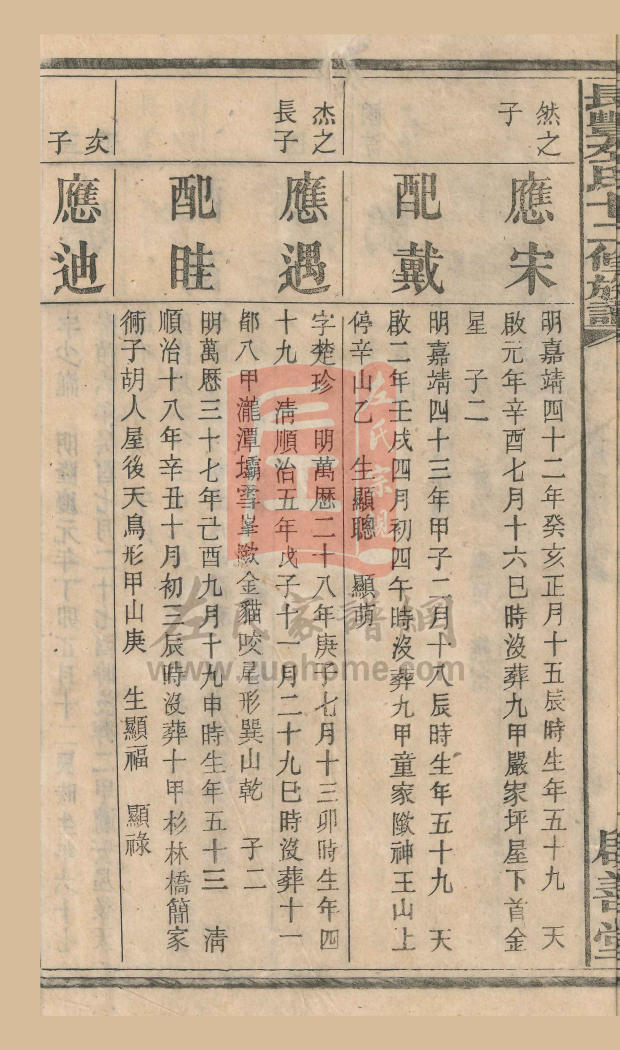 長豐左氏十二修族譜
啟善堂
然之
子
應宋
明嘉靖四十二年癸亥正月十五辰時生年五十九 天
啟元年辛酉七月十六巳時沒葬九甲嚴家坪屋下首金
星 子二
配戴
明嘉靖四十三年甲子二月十八辰時生年五十九 天
啟二年壬戌四月初四午時沒葬九甲童家隞神王山上
停辛山乙 生顯聰 顯萌
杰之
長子
應遇
字楚珍 明萬歷二十八年庚子七月十三卯時生年四
十九 清順治五年戊子十一月二十九巳時沒葬十一
都八甲瀧潭壩雪峯 金貓咬尾形巽山乾 子二
配眭
明萬歷三十七年己酉九月十九申時生年五十三 清
順治十八年辛丑十月初三辰時沒葬十甲杉林橋簡家
衕子胡人屋後天鳥形甲山庚 生顯福 顯祿
次
子
應迪
左氏宗親
左氏家譜網
www.zuohome.com